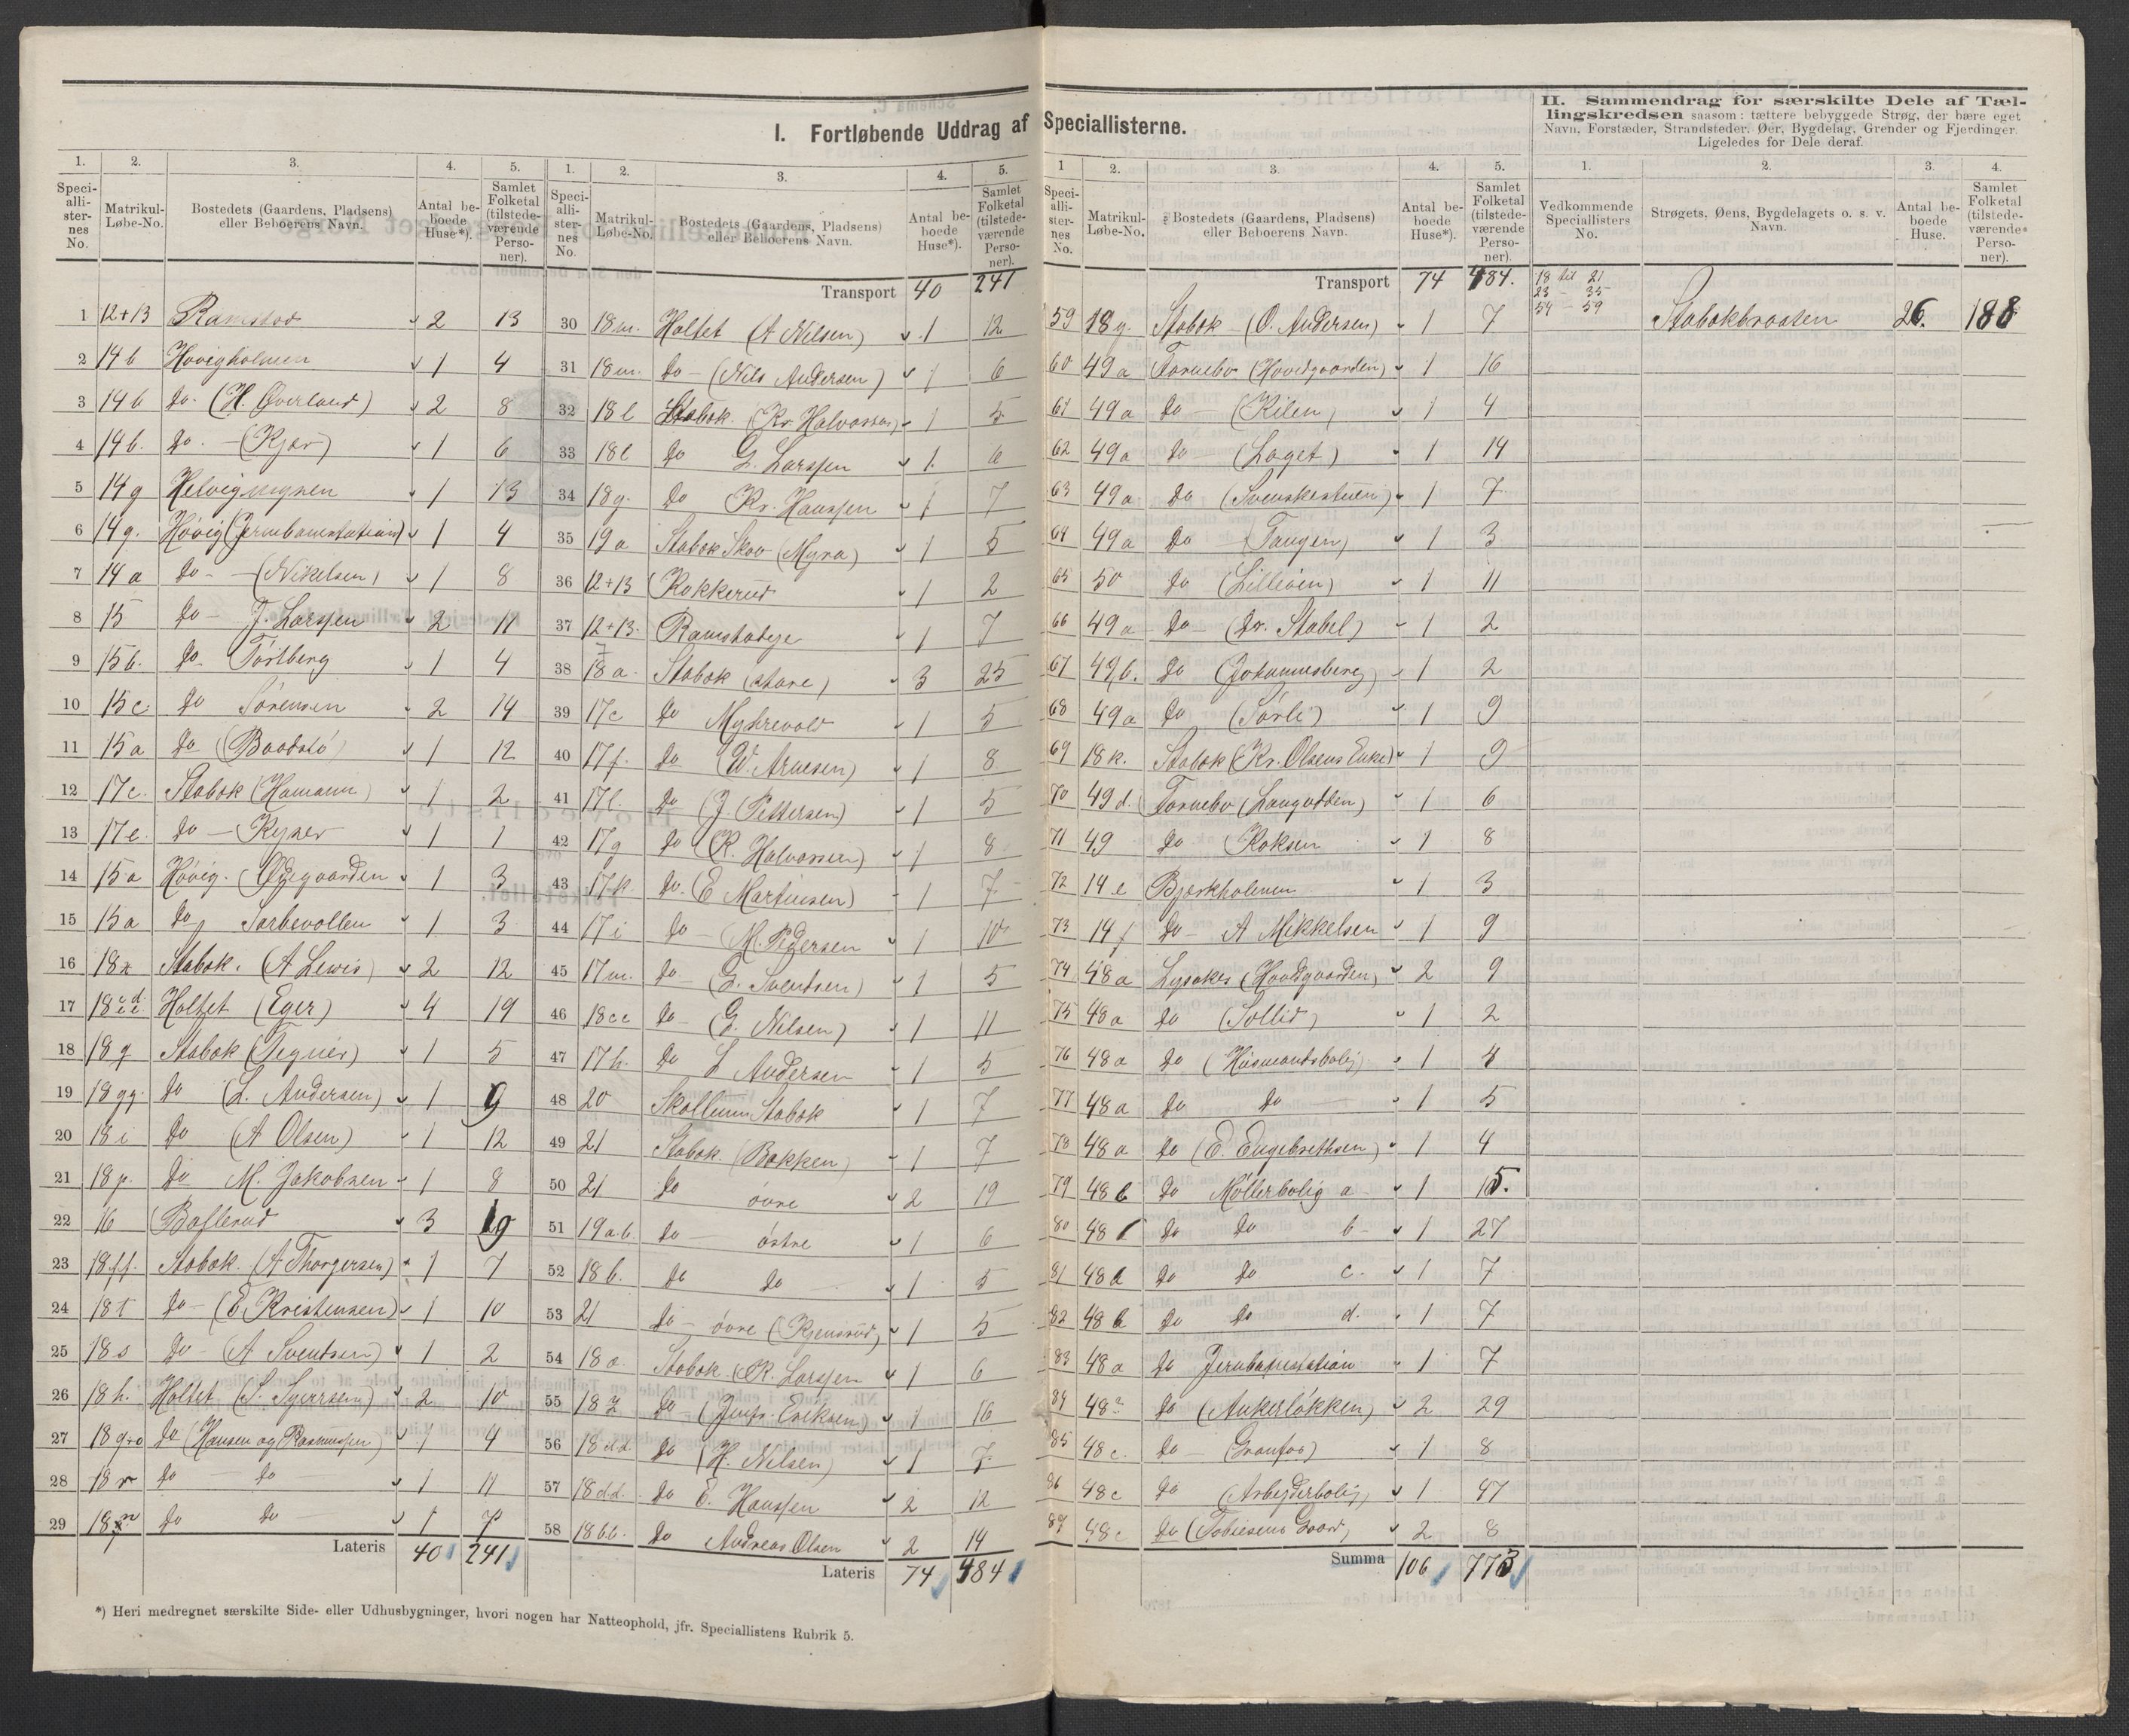 I. Fortløbende Uddrag af Speciallisterne.
II. Sammendrag for særskilte Dele af Tæl-
lingskredsen saasom: tættere bebyggede Strøg, der bære eget
Navn, Forstæder, Strandsteder, Øer, Bygdelag, Grender og Fjerdinger.
Ligeledes for Dele deraf.
1. 2. 3. 4. 5.
Speci-alli-ster-nes No. Matrikul-Løbe-No. Bostedets (Gaardens, Pladsens) eller Beboerens Navn. Antal be-boede Huse*). Samlet Folketal (tilstede-værende Perso-ner).
1 12+13 Ramstad 2 13
2 14b Hovigholmen 1 4
3 14b Do. (H. Øverland) 2 8
4 14b. Do. - (Kjær) 1 6
5 14g Helvigmyren 1 13
6 14g. Høvig (Jernbanestation) 1 4
7 14a Do - (Nikelsen) 1 8
8 15 Do - J. Larssen 2 11
9 15b. Do Tørtberg 1 4
10 15c Do Sørensen 2 14
11 15a Do (Baadstø) 1 12
12 17c. Stabæk (Hamann) 1 2
13 17e. Do - Kyner 1 1
14 15a Høvig. (Ødegaarden 1 3
15 15a Do Sarbevollen 1 3
16 18x Stabæk. (A Lewis) 2 12
17 18cd. Holtet (Eger) 4 19
18 18q Stabæk (Tegner) 1 5
19 18gg. Do (L. Andersen) 1 9
20 18i Do (A Olsen) 1 12
21 18p. Do M. Jakobsen 1 8
22 16 Ballerud 3 19
23 18ff. Stabæk. (A Thorgersen) 1 7
24 18t Do - (E. Kristensen) 1 10
25 18s Do - (A Sventsen) 1 2
26 18h. Holtet (S. Syversen) 2 10
27 18q+o Do (Hansen og Rasmussen) 1 4
28 18v Do - Do 1 11
29 18n Do Do 1 7
Lateris 40 241
1. 2. 3. 4. 5.
Speci-alli-ster-nes No. Matrikul-Løbe-No. Bostedets (Gaardens, Pladsens) eller Beboerens Navn. Antal be-boede Huse*). Samlet Folketal (tilstede-værende Perso-ner).
Transport 40 241
30 18m. Holtet (A Nilsen) 1 12
31 18m. Do - (Nils Andersen) 1 6
32 18l Stabæk. (Kr. Halvorsen) 1 5
33 18l Do G. Larssen 1 6
34 18g. Do Kr. Hanssen 1 7
35 19a Stabæk Skov (Myra) 1 5
36 12+13 Kokkerud 1 2
37 12+13. Ramstadeje 1 7
38 18a. Stabæk (store) 3 25
39 17c Do Myhrevold 1 5
40 17f. Do (W. Arnesen) 1 8
41 17l. Do (J. Pettersen) 1 5
42 17g Do (R. Halvorsen) 1 8
43 17k. Do. (E Martinsen) 1 7
44 17i Do - M. Pedersen 1 10
45 17m. Do - (G. Sventsen) 1 5
46 18cc Do - (G. Nilsen) 1 11
47 17h. Do L Andersen 1 5
48 20 Skollum Stabæk 1 7
49 21 Stabæk. (Bakken) 1 7
50 21 Do øvre 2 19
51 19a.b Do - østre 1 6
52 18b. Do Do 1 5
53 21 Do - øvre (Kjensrud) 1 5
54 18a. Stabæk. (R. Larssen 1 6
55 18z Do - (Jomfr. Eriksen) 1 16
56 18dd Do (H. Nilsen) 1 7
57 18dd. Do E. Hanssen 2 12
58 18bb. Do Andreas Olsen 2 14
Lateris 74 484
*) Heri medregnet særskilte Side- eller Udhusbygninger, hvori nogen har Natteophold, jfr. Speciallistens Rubrik 5.
1 2. 3. 4. 5.
Speci-alli-ster-nes No. Matrikul-Løbe-No. Bostedets (Gaardens, Pladsens) eller Beboerens Navn. Antal be-boede Huse*). Samlet Folketal (tilstede-værende Perso-ner).
Transport 74 484.
59 18y. Stabæk - (O. Andersen) 1 7
60 49a Fornebo (Hovedgaarden) 1 16
61 49a Do - (Kilen) 1 4
62 49a Do - (Laget) 1 14
63 49a Do (Svenskestuen) 1 7
64 49a Do (Tangen) 1 3
65 50 Do (Lilleøen) 1 11
66 49a Do - (Dr. Stabel) 1 2
67 49b. Do (Johannesberg) 1 2
68 49a Do (Sørli) 1 9
69 18k. Stabæk (Kr. Olsens Enke) 1 9
70 49d. Fornebo (Langodden) 1 6
71 49 Do Koksen 1 8
72 14e Bjerkholmen 1 3
73 14f Do - A Mikkelsen 1 9
74 48a Lysaker (Hovdgaarden) 2 9
75 48a Do (Sollid) 1 2
76 48a Do (Husmandsbolig) 1 4
77 48a Do Do 1 5
78 48a Do (E. Engebrethsen) 1 4
79 48b Do Møllerbolig a 1 15.
80 48b Do Do b - 1 27
81 48b Do Do c. 1 7
82 48b Do Do d. 1 7
83 48a Do Jernbanestation 1 7
84 48? Do (Ankerløkken) 2 29
85 48c. Do - (Granfos) 1 8
86 48c Do (Arbejderbolig) 1 47
87 48c Do (Tobiesens Gaard) 2 8
Summa 106 773
1. 2. 3. 4.
Vedkommende Speciallisters No. Strøgets, Øens, Bygdelagets o. s. v. Navn. Antal be-boede Huse. Samlet Folketal (tilstede-værende Perso-ner).
18 til 21
23 - 35
54 - 59 Stabækbraaten 26. 188